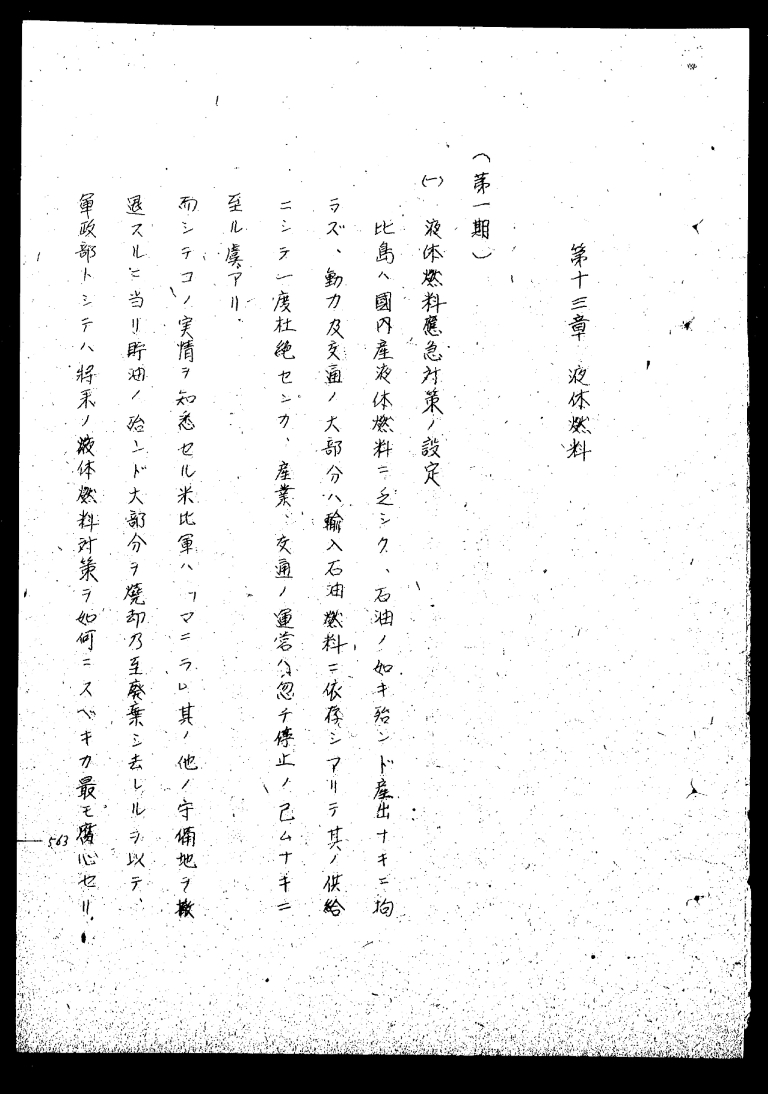 第十三章　液体燃料
（第一期）
(一)　液体燃料應急対策ノ設定
比島ハ國内産液体燃料ニ乏シク、石油ノ如キ殆ンド産出ナキニ拘
ラズ、動力及交通ノ大部分ハ輸入石油燃料ニ依存シアリテ其ノ供給
ニシテ一度杜絶センカ、産業、交通ノ運営ハ忽チ停止ノ已ムナキニ
至ル虞アリ．
而シテコノ実情ヲ知悉セル米比軍ハ「マニラ」其ノ他ノ守備地ヲ撤
退スルニ当リ貯油ノ殆ンド大部分ヲ燒却乃至廢棄シ去レルヲ以テ、
軍政部トシテハ將来ノ液体燃料対策ヲ如何ニスベキカ最モ腐心セリ．
563